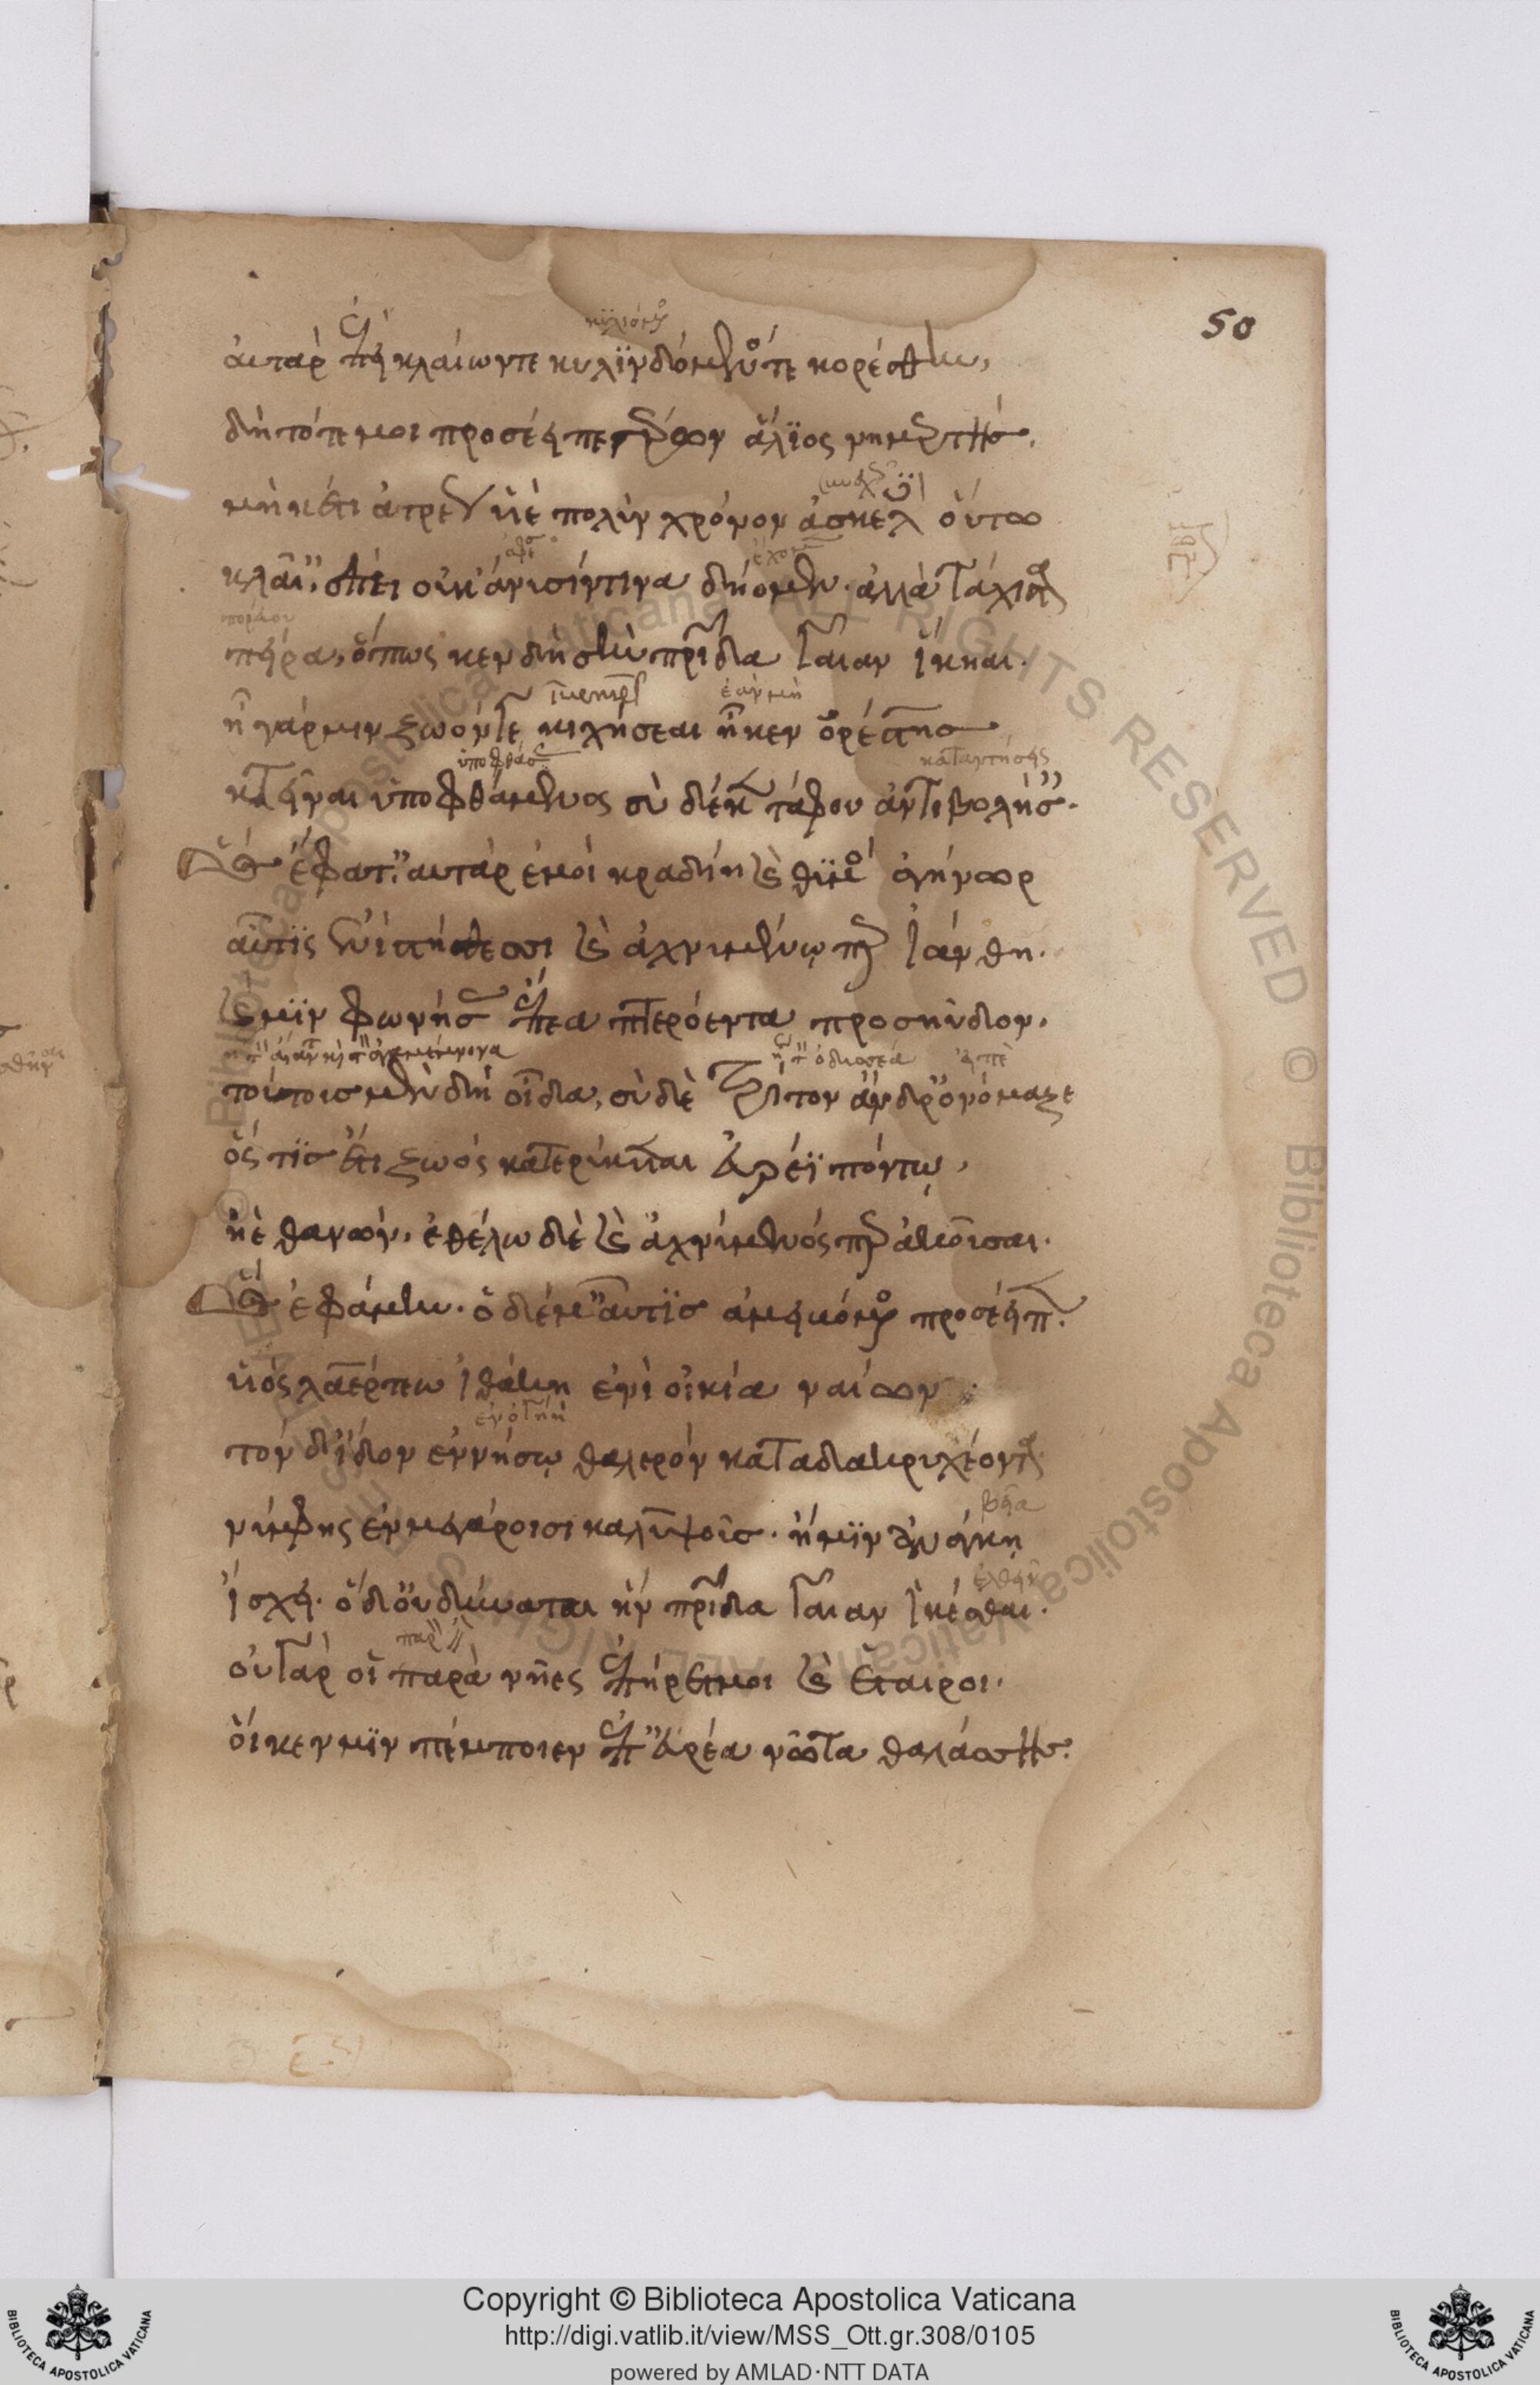 50
κυλιόμενος
αὐτὰρ ἐπεὶ κλαίωντε κυλϊνδόμενόσ τε κορέσθην,
δὴ τότε μοι προσέειπε γέρων ἅλϊος νημερτής.
μηκέτι ἀτρέος υἱὲ πολὺν χρόνον ἀσκελὲς οὕτω
κλαῖ', ἐπεὶ οὐκ ἄνυσίν τινα δήομεν. ἀλλὰ τάχιστα
πείρα, ὅπως κεν δὴ σὴν πατρίδα γαῖαν ἵκηαι.
ἐὰν μὴ
ἢ γάρ μιν ζωόν γε κιχήσεαι ἤ κεν ὀρέστης
ὑποφθάσας καταντήσεις
κτεῖναι ὑποφθάμενος σὺ δέ κε τάφου ἀντιβολήσαις.
Ὣς ἔφατ', αὐτὰρ ἐμοὶ κραδίη καὶ θϋμὸς ἀγήνωρ
αὖτϊς ἐνὶ στήθεσσι καὶ ἀχνυμένῳ περ ἰάνθη.
καὶ μϊν φωνήσας ἔπεα πτερόεντα προσηύδων.
τὸν ὀδυσσέα εἰπὲ
τούτους μὲν δὴ οἶδα, σὺ δὲ τρίτον ἄνδρ' ὀνόμαζε
ὅς τϊσ ἔτι ζωὸς κατερύκεται εὐρέϊ πόντῳ,
ἠὲ θανών. ἐθέλω δὲ καὶ ἀχνύμενός περ ἀκοῦσαι.
Ὣς ἐφάμην. ὁ δέ μ' αὖτϊσ ἀμειβόμενος προσέειπε.
υἱὸς λαέρτεω ἰθάκη ἐνὶ οἰκία ναίων
τὸν δ' ἴδον ἐν νήσῳ θαλερὸν κατὰ δάκρυ χέοντα
βίᾳ
νύμφης ἐν μεγάροισι καλυψοῦσ. ἥ μϊν ἀνάγκῃ
ἐλθεῖν
ἴσχει. ὁ δ' οὐ δύναται ἣν πατρίδα γαῖαν ἱκέσθαι.
οὐ γάρ οἱ παρὰ νῆες ἐπήρετμοι καὶ ἑταῖροι.
οἵ κεν μϊν πέμποιεν ἐπ' εὐρέα νῶτα θαλάσσης.
© Biblioteca Apostolica Vaticana ALL RIGHTS RESERVED
Copyright © Biblioteca Apostolica Vaticana
http://digi.vatlib.it/view/MSS_Ott.gr.308/0105
powered by AMLAD·NTT DATA
BIBLIOTECA APOSTOLICA VATICANA
BIBLIOTECA APOSTOLICA VATICANA